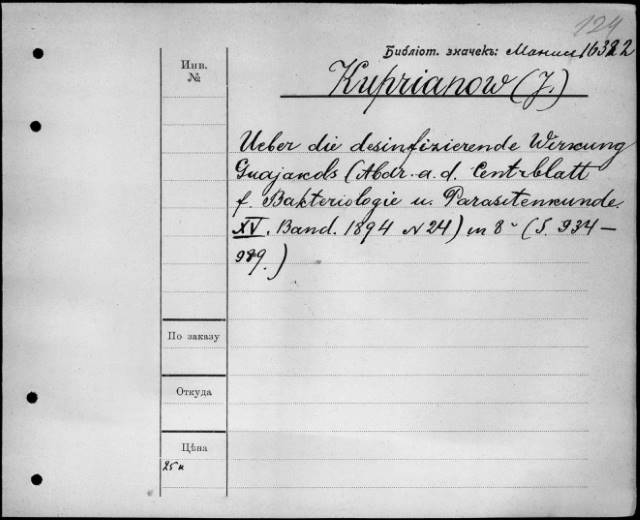 124
Библіот. значекъ:
Инв.
№
Kuprianow (J.)
Ueber die desinfizierende Wirkung
Guajakols (Abdr. a. d. Centrblatt
f. Bakteriologie u. Parasitenkunde.
XV. Band. 1894 N 24) in 8° (S. 934 —
По заказу
Откуда
Цѣна
25 к